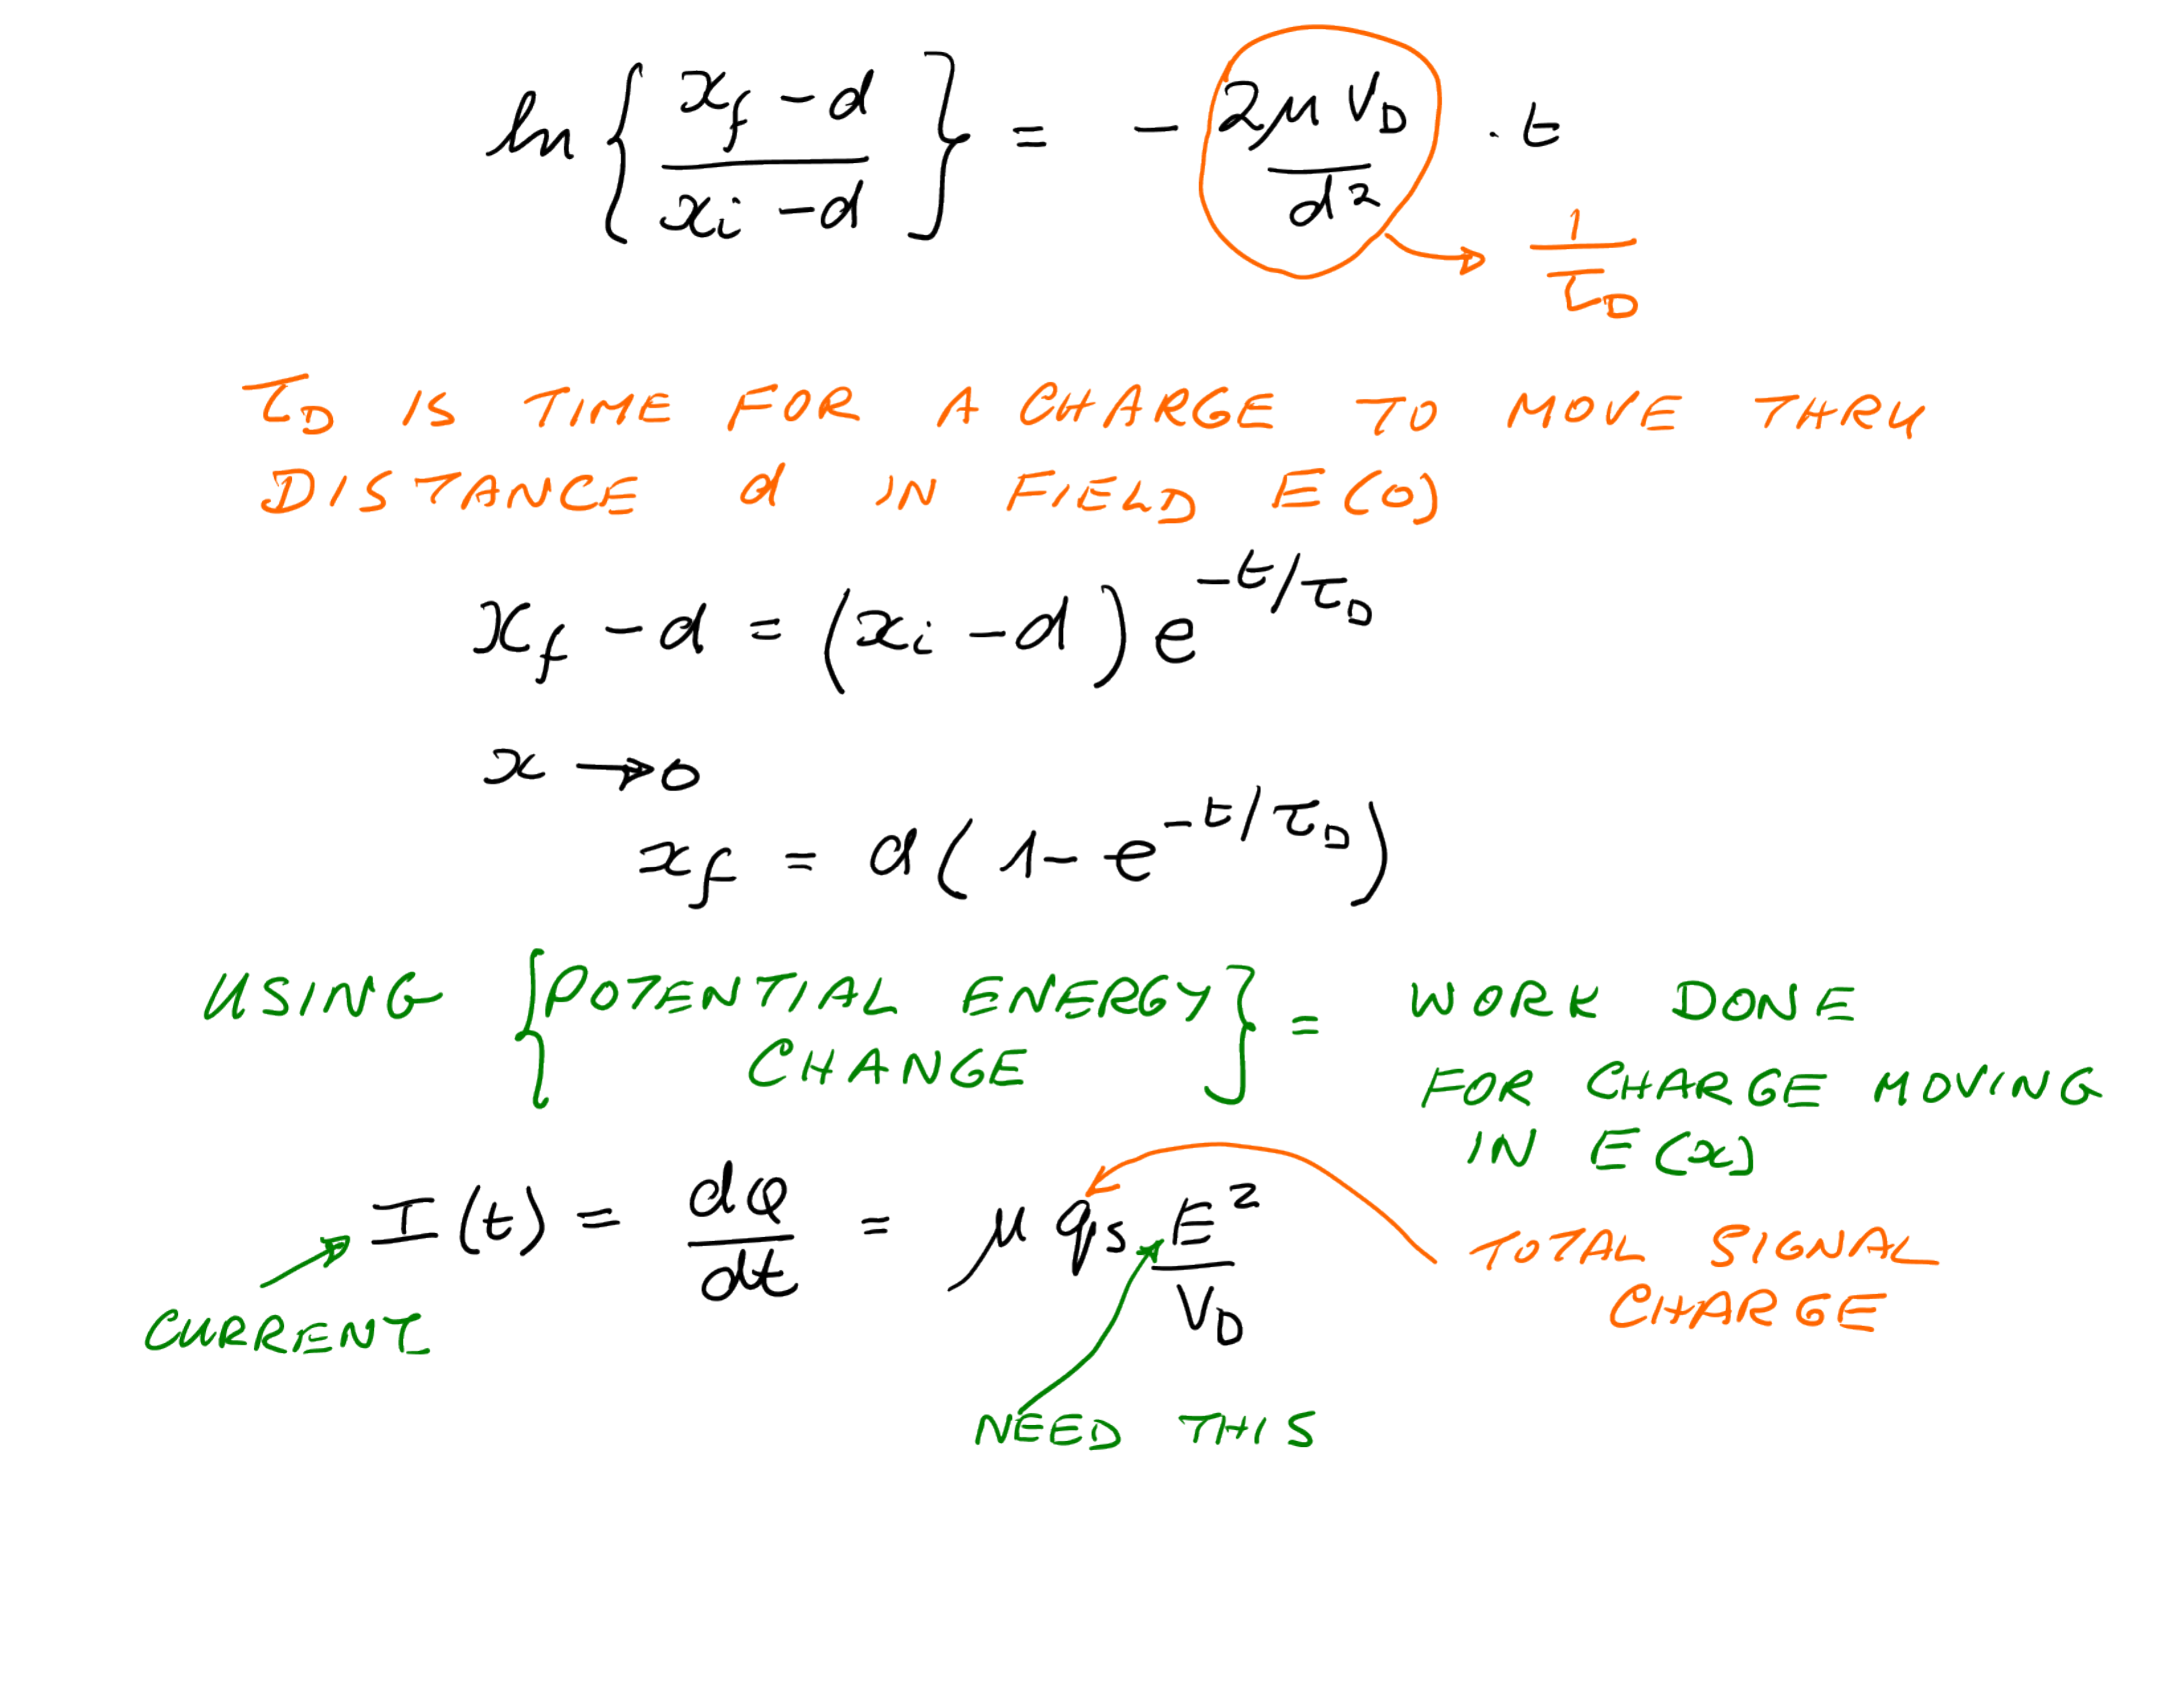 ln { (x_f - d) / (x_i - d) } = - (2μV_D / d²) · t
1/τ_D
τ_D IS TIME FOR A CHARGE TO MOVE THRU
DISTANCE d IN FIELD E(0)
x_f - d = (x_i - d) e^(-t/τ_D)
x → 0
x_f = d(1 - e^(-t/τ_D))
USING {POTENTIAL ENERGY CHANGE} = WORK DONE
FOR CHARGE MOVING
IN E(x)
I(t) = dφ/dt = μ q_s E²/V_D
TOTAL SIGNAL
CHARGE
CURRENT
NEED THIS